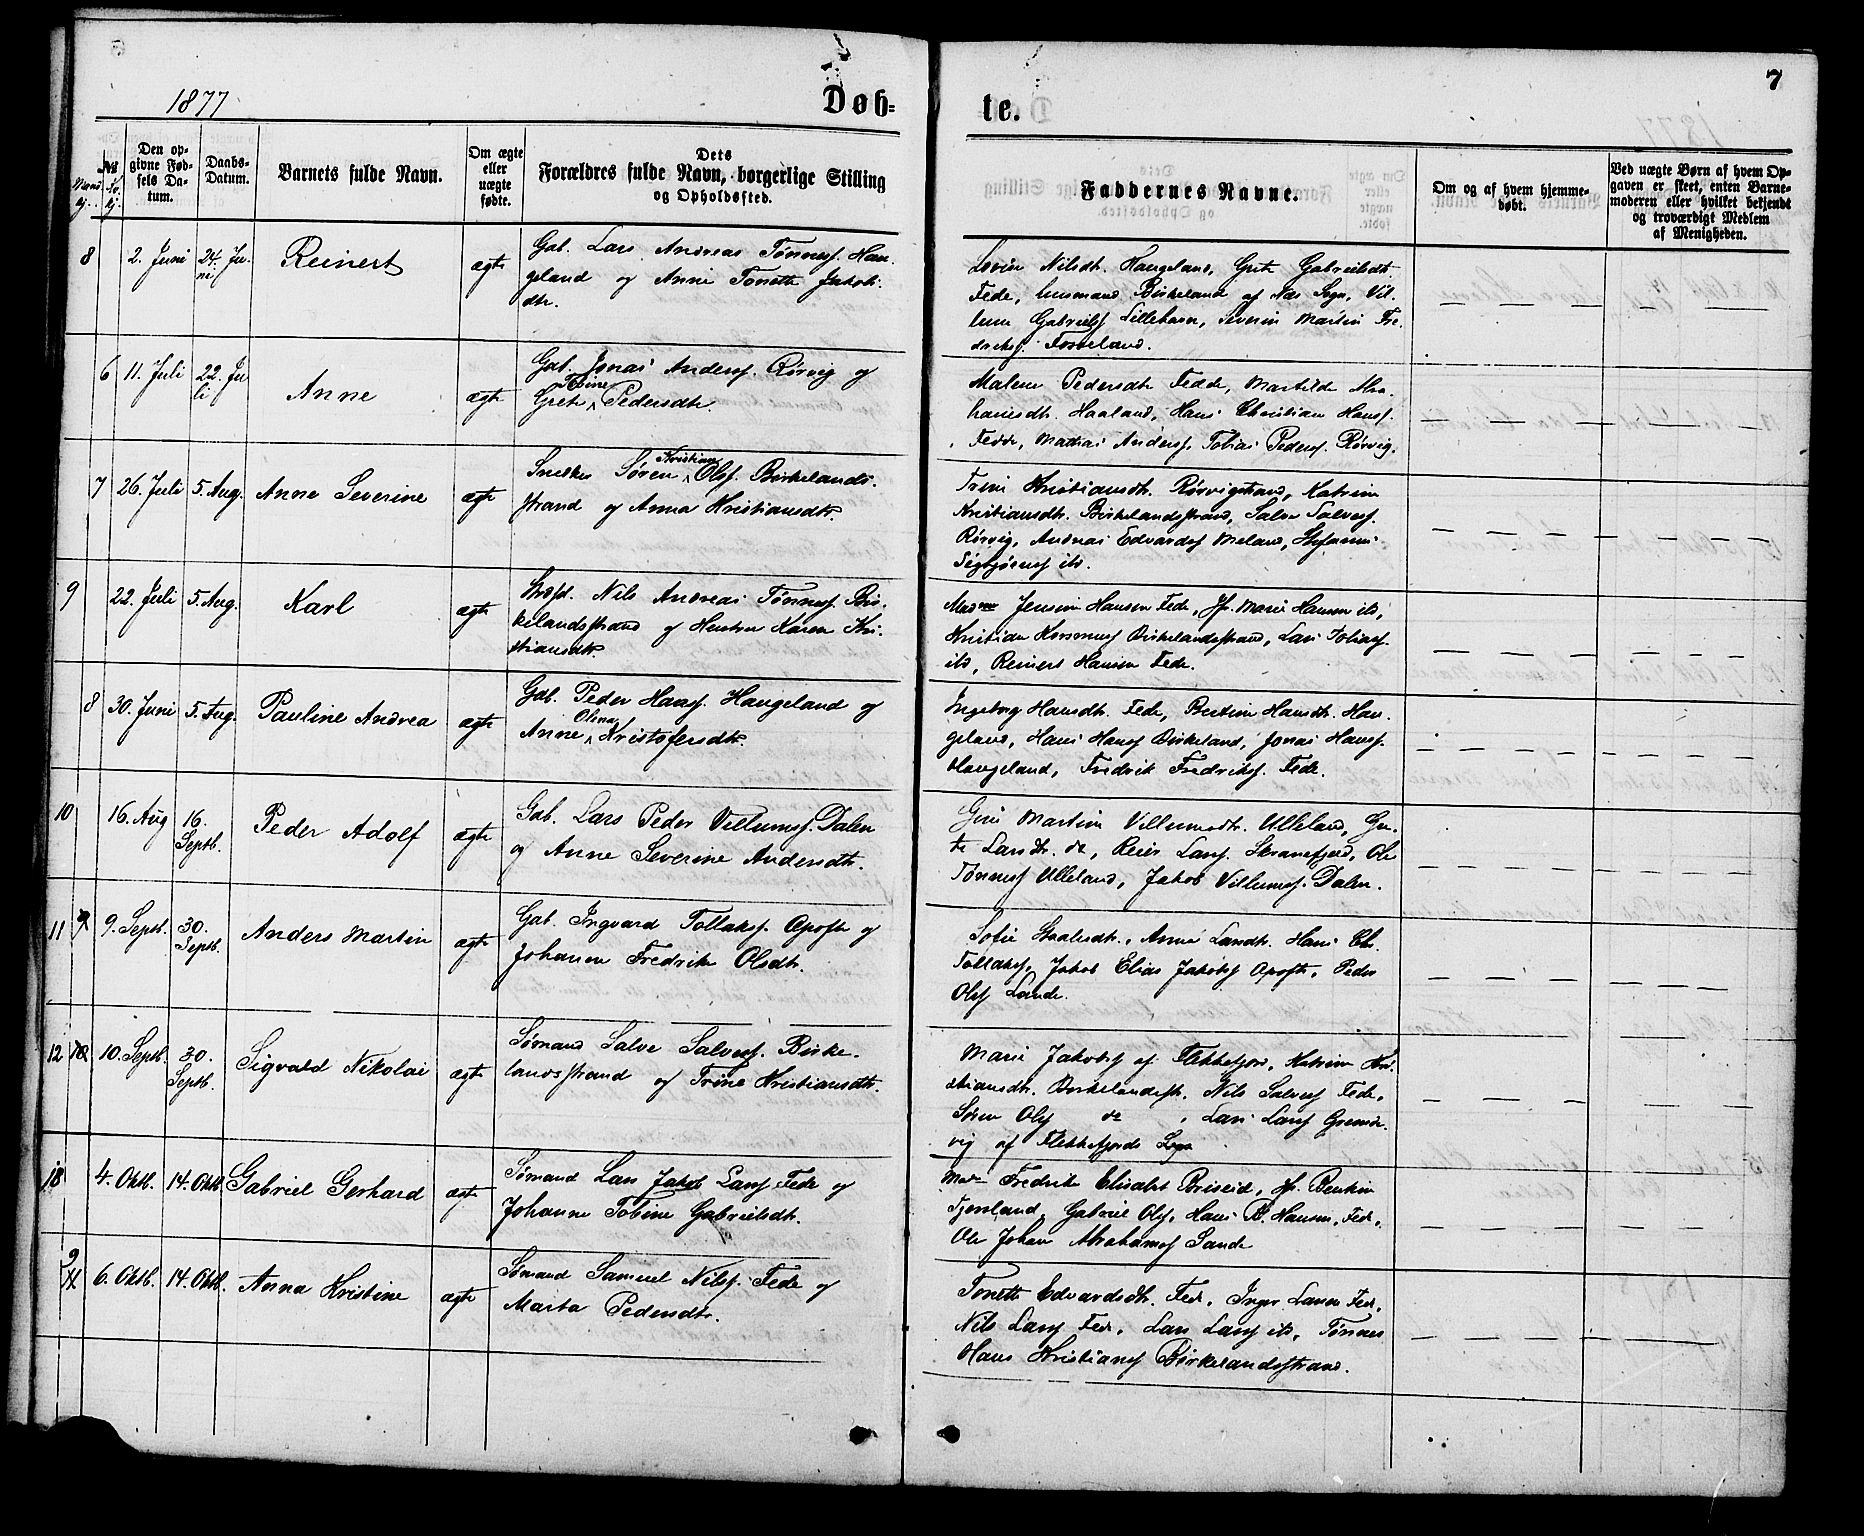 7
1877
Døb-
te.
Den op-
givne Fød-
sels Da-
tum.
Daabs-
Datum.
Barnets fulde Navn.
Om ægte
eller
uægte
fødte.
Dets
Forældres fulde Navn, borgerlige Stilling
og Opholdssted.
Faddernes Navne.
Om og af hvem hjemme-
døbt.
Ved uægte Børn af hvem Op-
gaven er skeet, enten Barne-
moderen eller hvilket bekjendt
og troværdigt Medlem
af Menigheden.
8 2. Juni 24. Ju-
ni
Reinert
ægte
Gab. Lars Andreas Tønnesf. Hau-
geland og Anne Tonette Jakob-
dtr.
Lovise Nilsdtr. Haugeland, Grete Gabrielsdtr.
Fede, husmand Birkeland af Nes Sogn, Vil-
lum Gabrielsf. Lillehavn, Severin Martin Fre-
driksf. Fosseland.
6 11. Juli 22. Ju-
li
Anne
ægte
Gab. Jonas Andersf. Rørvig og
Grete Tobine Pedersdtr.
Malene Pedersdtr Fedde, Mathilde Abra-
hamsdtr. Haaland, Hans Christian Hansf.
Fedde, Mathias Andersf. Tobias Pedersf. Rørvig.
7 26. Juli 5. Aug.
Anne Severine
ægte
Snedker Søren Kristian Olsf. Birkelands-
strand og Anna Kristiansdtr.
Trine Kristiansdtr. Rørvigstrand, Katrine
Kristiansdtr. Birkelandsstrand, Salve Salvesf.
Rørvig, Andreas Edvardsf Meland,
Sigbjørnsf ib.
9 22. Juli 5. Aug.
Karl
ægte
Nils Andreas Tønnesf. Bir-
kelandsstrand og Karen Kri-
stiansdtr.
Madme Jensine Hansen Fede, Jf. Marie Hansen ib,
Kristian Birkelandsstrand, Lars Tobiasf.
ib, Reinert Hansen Fede.
8 30. Juni 5. Aug.
Pauline Andrea
ægte
Gab. Peder Hansf. Haugeland og
Anne Olena Kristofersdtr.
Ingeborg Hansdtr. Fede, Bertine Hansdtr. Hau-
geland, Hans Hansf Birkeland, Jonas Hansf.
Haugeland, Fredrik Fredriksf. Fede.
10 16. Aug 16.
Septb.
Peder Adolf
ægte
Gab. Lars Peder Villumsf. Dalen
og Anne Severine Andersdtr.
Gine Martine Villumsdtr. Ulleland, Gre-
te Larsdtr. do, Reier Larsf. Skranefjeld, Ole
Tønnesf Ulleland, Jakob Villumsf. Dalen.
11 9 9. Septb. 30.
Septb.
Anders Martin
ægte
Gab. Ingvard Tollaksf. Apofte og
Johanne Fredrike Olsdtr.
Sofie Anne Larsdtr. Hans Chr.
Tollaksf, Jakob Elias Jakobsf Apofte, Peder
Olsf Lande.
12 10 10. Septb. 30.
Septb.
Sigvald Nikolai
ægte
Sømand Salve Salvesf. Birke-
landsstrand og Trine Kristiansdtr.
Marie Jakobsf af Flekkefjord, Katrine Kri-
stiansdtr. Birkelandsstr. Nils Salvesf Fede,
Søren Olsf do, Lars Larsf
vig af Flekkefjords Sogn
13 4. Oktb. 14. Oktb.
Gabriel Gerhard
ægte
Sømand Lars Jakob Larsf Fede og
Johanne Tobine Gabrielsdtr.
Mad. Fredrike Elisabet Briseid, Jf. Bentine
Tjomsland, Gabriel Olsf, Hans B. Hansen, Fede,
Ole Johan Abrahamsf Sande
9
11 6. Oktb. 14. Oktb.
Anna Kristine
ægte
Sømand Samuel Nilsf. Fede og
Marta Pedersdtr.
Tonette Edvardsdtr. Fede, Inger Larsen Fede,
Nils Larsf Fede, Lars Larsf ib, Tønnes
Hans Kristiansf Birkelandsstrand.